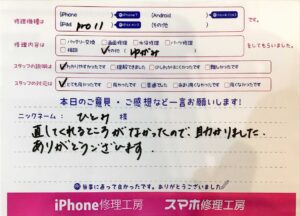 修理機種は
□iPhone
□Android
☑iPad pro 11
□その他
修理内容は
□バッテリー交換 □画面修理 □水没修理 □パーツ修理
□相談 ☑その他( ゆがみ )をしてもらいました。
スタッフの説明は ☑わかりやすかったです □理解できました □少しわかりにくかったです □難しかったです
スタッフの対応は ☑とても良かったです □良かったです □普通でした
本日のご意見・ご感想など一言お願いします!
ニックネーム: ひとみ 様
直してくれるところがなかったので、助かりました。
ありがとうございます
皆様に直って良かったです。ありがとうございました
iPhone修理工房 スマホ修理工房